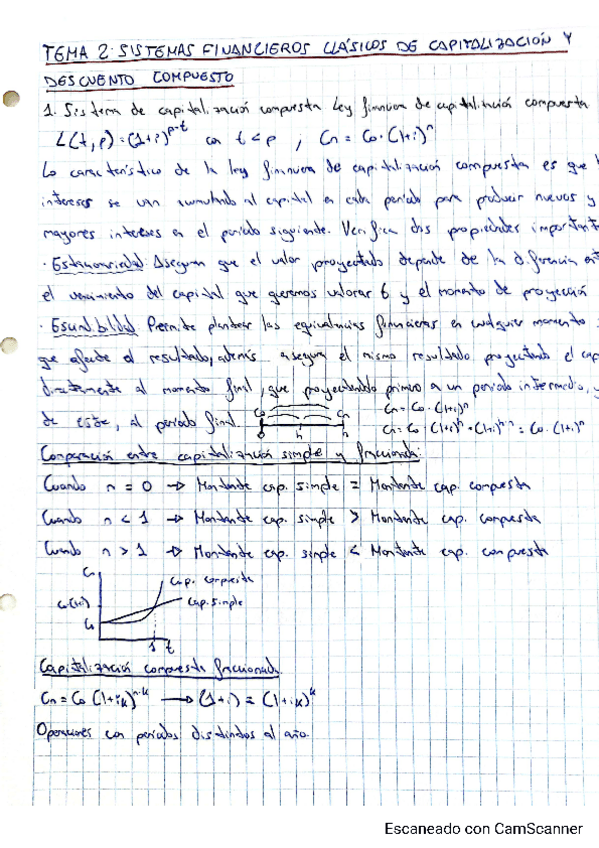 TEMA 2: SISTEMAS FINANCIEROS CLÁSICOS DE CAPITALIZACIÓN Y
DESCUENTO COMPUESTO
1. Sistema de capitalización compuesta. Ley financiera de capitalización compuesta
L(t,p)=(1+i)^p-t con t<p ; Cn = Co·(1+i)^n
Lo característico de la ley financiera de capitalización compuesta es que
intereses se van acumulando al capital en cada periodo para producir nuevos y
mayores intereses en el periodo siguiente. Verifica dos propiedades important
· Estacionariedad: Aseguran que el valor proyectado depende de la diferencia
el vencimiento del capital que queremos valorar 6 y el momento de proyección
· Escindibilidad: Permite plantear las equivalencias financieras en cualquier momento
que afecte el resultado, además asegura el mismo resultado proyectando el cap
directamente al momento final, que proyectándolo primero a un periodo intermedio, y
de este, al periodo final. Co Cn Cn = Co·(1+i)^n
0 h n Cn = Co·(1+i)^h·(1+i)^n-h = Co·(1+i)^n
Comparación entre capitalización simple y fraccionada:
Cuando n = 0 → Montante cap. simple = Montante cap. compuesta
Cuando n < 1 → Montante cap. simple > Montante cap. compuesta
Cuando n > 1 → Montante cap. simple < Montante cap. compuesta
Cn
cap. compuesta
Cap. Simple
Co(1+i)
Co
1 t
Capitalización compuesta fraccionada
Cn = Co (1+ik)^n·k → (1+i) = (1+ik)^k
Operaciones con periodos distintos al año.
Escaneado con CamScanner